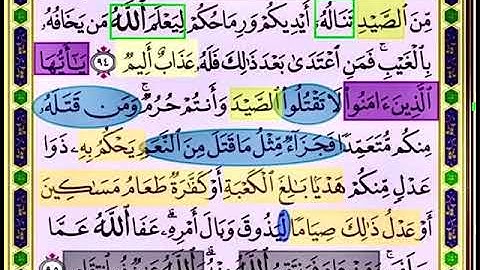 مِّنَ ٱلصَّيْدِ تَنَالُهُۥٓ أَيْدِيكُمْ وَرِمَاحُكُمْ لِيَعْلَمَ ٱللَّهُ مَن يَخَافُهُۥ
بِٱلْغَيْبِ ۚ فَمَنِ ٱعْتَدَىٰ بَعْدَ ذَٰلِكَ فَلَهُۥ عَذَابٌ أَلِيمٌ ٩٤ يَـٰٓأَيُّهَا
ٱلَّذِينَ ءَامَنُوا۟ لَا تَقْتُلُوا۟ ٱلصَّيْدَ وَأَنتُمْ حُرُمٌ ۚ وَمَن قَتَلَهُۥ
مِنكُم مُّتَعَمِّدًا فَجَزَآءٌ مِّثْلُ مَا قَتَلَ مِنَ ٱلنَّعَمِ يَحْكُمُ بِهِۦ ذَوَا
عَدْلٍ مِّنكُمْ هَدْيًۢا بَـٰلِغَ ٱلْكَعْبَةِ أَوْ كَفَّـٰرَةٌ طَعَامُ مَسَـٰكِينَ
أَوْ عَدْلُ ذَٰلِكَ صِيَامًا لِّيَذُوقَ وَبَالَ أَمْرِهِۦ ۗ عَفَا ٱللَّهُ عَمَّا